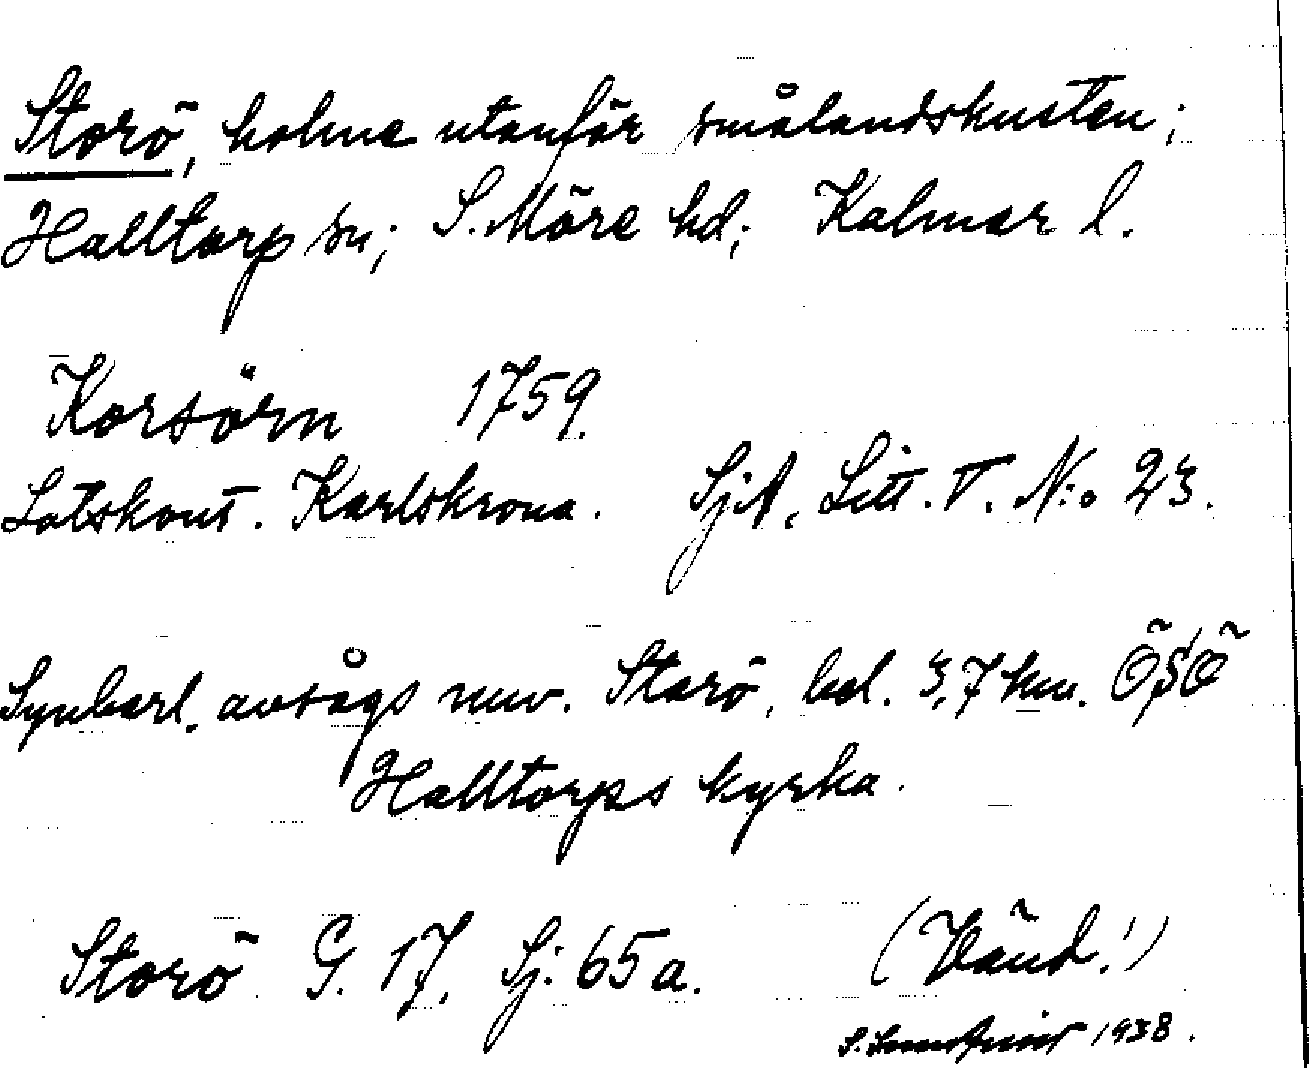 Storö, holme utanför smålandskusten;
Halltorp sn; S. Möre hd; Kalmar l.
Korsörn 1759.
Lotskont. Karlskrona. SjA, Litt. V. N:o 23.
Synbarl. avsågs nuv. Storö, bel. 3,7 km. ÖSÖ
Halltorps kyrka.
Storö G. 17, Sj: 65a. (Vänd!)
S. 1938.